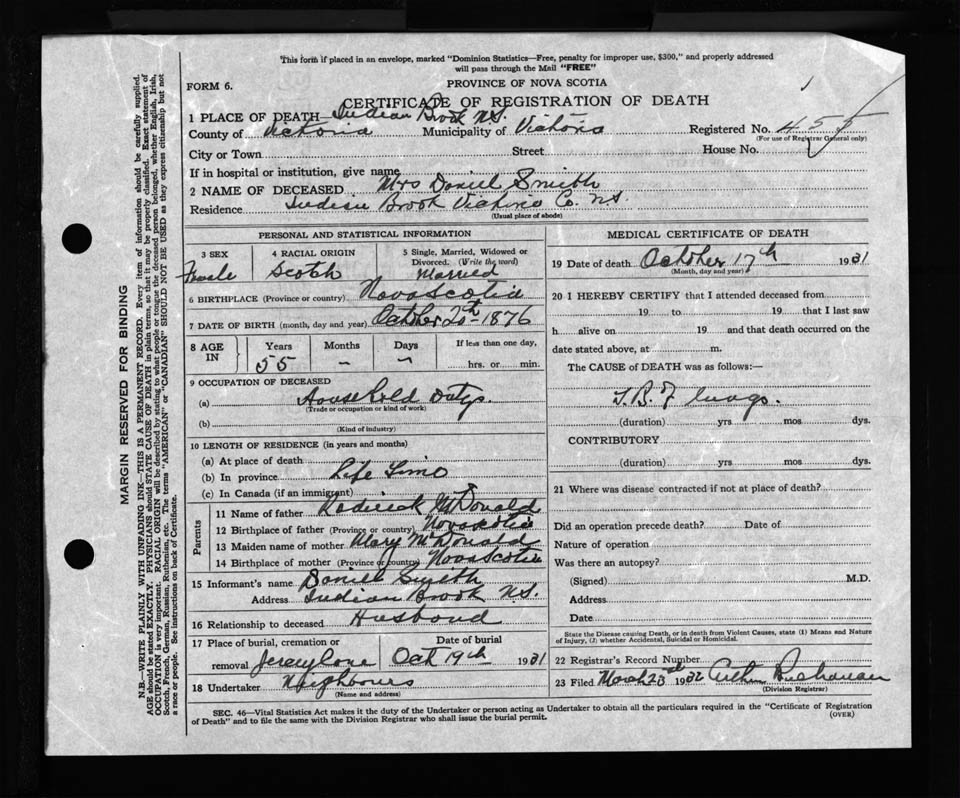 This form if placed in an envelope, marked "Dominion Statistics—Free, penalty for improper use, $300," and properly addressed
will pass through the Mail "FREE"
FORM 6.
PROVINCE OF NOVA SCOTIA
CERTIFICATE OF REGISTRATION OF DEATH
1 PLACE OF DEATH— Indian Brook N.S.
County of Victoria Municipality of Victoria Registered No. 455
(For use of Registrar General only)
City or Town Street House No.
If in hospital or institution, give name
2 NAME OF DECEASED Mrs Daniel Smith
Residence Indian Brook Victoria Co. N.S.
(Usual place of abode)
PERSONAL AND STATISTICAL INFORMATION
3 SEX 4 RACIAL ORIGIN 5 Single, Married, Widowed or
Divorced. (Write the word)
Female Scotch Married
6 BIRTHPLACE (Province or country) Nova Scotia
7 DATE OF BIRTH (month, day and year) October 20th 1876
8 AGE IN Years Months Days If less than one day,
55 – – hrs. or min.
9 OCCUPATION OF DECEASED
(a) Household Dutys.
(Trade or occupation or kind of work)
(b)
(Kind of industry)
10 LENGTH OF RESIDENCE (in years and months)
(a) At place of death
(b) In province Life Time
(c) In Canada (if an immigrant)
Parents
11 Name of father Roderick McDonald
12 Birthplace of father (Province or country) Nova Scotia
13 Maiden name of mother Mary McDonald
14 Birthplace of mother (Province or country) Nova Scotia
15 Informant's name Daniel Smith
Address Indian Brook N.S.
16 Relationship to deceased Husband
17 Place of burial, cremation or Date of burial
removal Oct 19th 1931
18 Undertaker Neighbours
(Name and address)
MEDICAL CERTIFICATE OF DEATH
19 Date of death October 17th 1931
(Month, day and year)
20 I HEREBY CERTIFY that I attended deceased from
19 to 19 that I last saw
h alive on 19 and that death occurred on the
date stated above, at m.
The CAUSE of DEATH was as follows:—
T.B. of lungs.
(duration) yrs mos dys.
CONTRIBUTORY
(duration) yrs mos dys.
21 Where was disease contracted if not at place of death?
Did an operation precede death? Date of
Nature of operation
Was there an autopsy?
(Signed) M.D.
Address
Date
State the Disease causing Death, or in death from Violent Causes, state (1) Means and Nature
of Injury, (2) whether Accidental, Suicidal or Homicidal.
22 Registrar's Record Number
23 Filed March 23rd 1932 Arthur Buchanan
(Division Registrar)
SEC. 46—Vital Statistics Act makes it the duty of the Undertaker or person acting as Undertaker to obtain all the particulars required in the "Certificate of Registration
of Death" and to file the same with the Division Registrar who shall issue the burial permit.
(OVER)
MARGIN RESERVED FOR BINDING
N.B.—WRITE PLAINLY WITH UNFADING INK—THIS IS A PERMANENT RECORD. Every item of information should be carefully supplied.
AGE should be stated EXACTLY. PHYSICIANS should STATE CAUSE OF DEATH in plain terms, so that it may be properly classified. Exact statement of
OCCUPATION is very important. RACIAL ORIGIN will be described by stating to what people or tongue the deceased person belonged, whether English, Irish,
Scotch, French, German, Russian, Ruthenian, etc. The terms "AMERICAN" or "CANADIAN" SHOULD NOT BE USED as they express citizenship but not
a race or people. See instructions on back of Certificate.